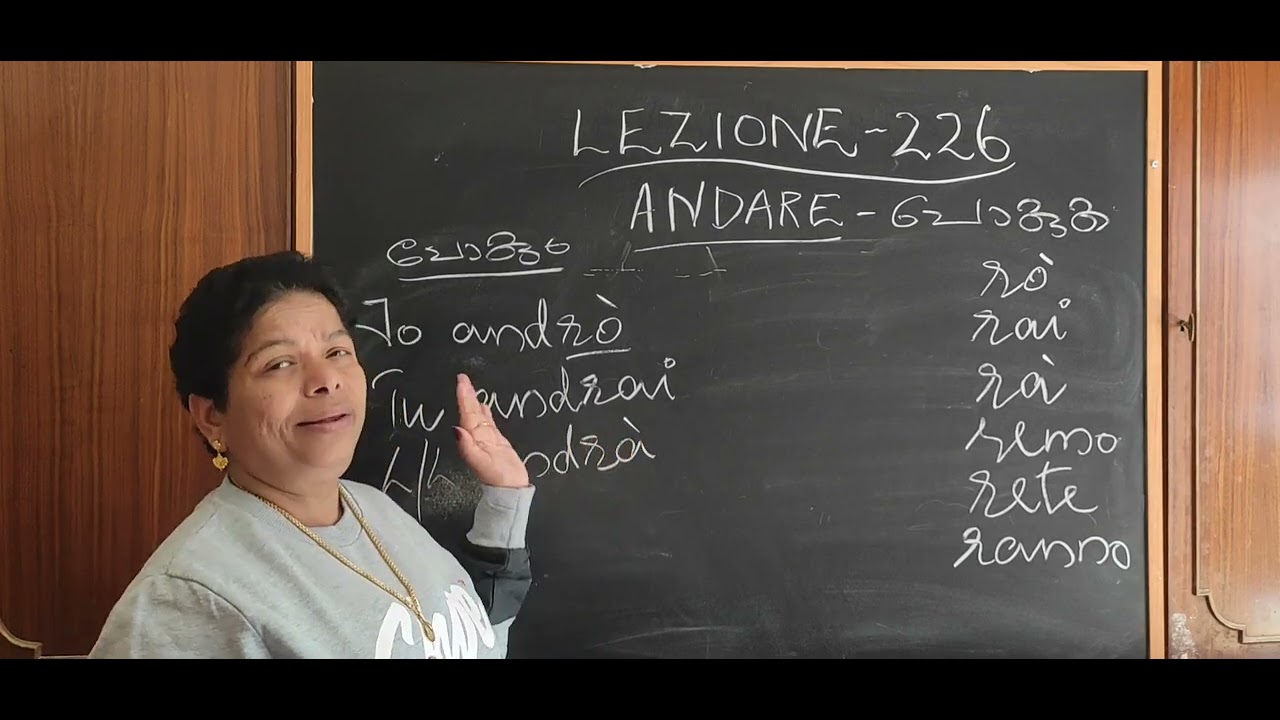 LEZIONE-226
ANDARE - പോകുക
പോകും
Io andrò
Tu andrai
L/L andrà
rò
rai
rà
remo
rete
ranno